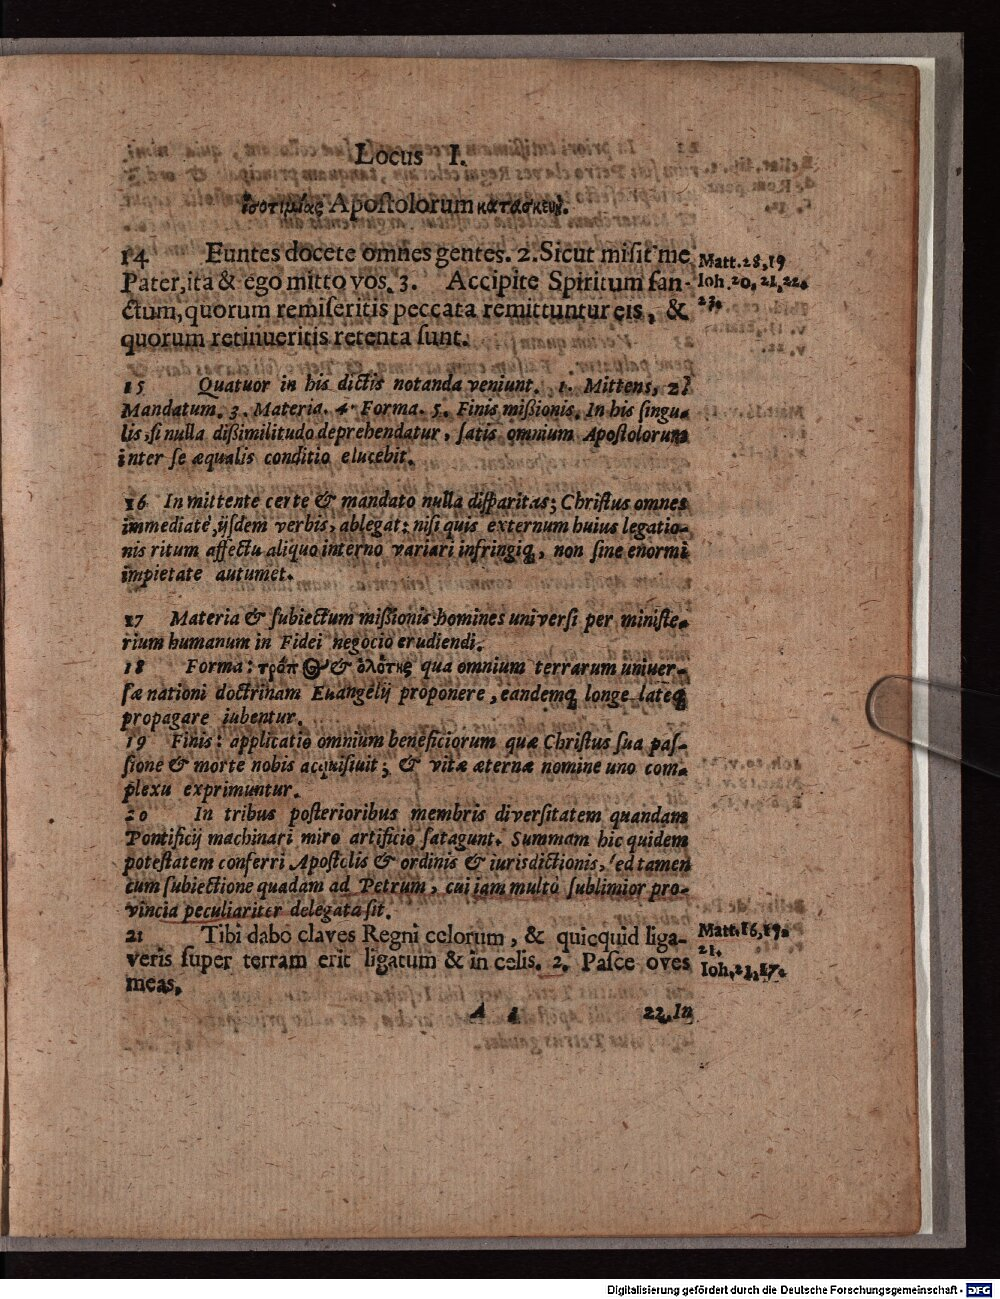 Locus I.
ἰσοτιμίας Apoſtolorum κατασκευή.
14 Euntes docete omnes gentes. 2. Sicut miſit me Matt. 28, 19
Pater, ita & ego mitto vos. 3. Accipite Spiritum ſan- Ioh. 20, 21, 22.
ctum, quorum remiſeritis peccata remittuntur eis, & 23.
quorum retinueritis retenta ſunt.
15 Quatuor in his dictis notanda veniunt. 1. Mittens, 2?
Mandatum. 3. Materia. 4. Forma. 5. Finis mißionis. In his ſingu-
lis, ſi nulla dißimilitudo deprehendatur, ſatis omnium Apoſtolorum
inter ſe æqualis conditio elucebit.
16 In mittente certe & mandato nulla diſparitas; Chriſtus omnes
immediatè, ijſdem verbis, ablegat: niſi quis externum huius legatio-
nis ritum affectu aliquo interno variari infringiq́, non ſine enormi
impietate autumet.
17 Materia & ſubiectum mißionis homines univerſi per miniſte-
rium humanum in Fidei negocio erudiendi.
18 Forma: τρόπος & ὁλότης qua omnium terrarum univer-
ſæ nationi doctrinam Euangelij proponere, eandemq́ longe lateq́
propagare iubentur.
19 Finis: applicatio omnium beneficiorum quæ Chriſtus ſua paſ-
ſione & morte nobis acquiſiuit; & vitæ æternæ nomine uno com-
plexu exprimuntur.
20 In tribus poſterioribus membris diverſitatem quandam
Pontificij machinari miro artificio ſatagunt. Summam hic quidem
poteſtatem conferri Apoſtolis & ordinis & iurisdictionis, ſed tamen
cum ſubiectione quadam ad Petrum, cui iam multò ſublimior pro-
vincia peculiariter delegata ſit.
21 Tibi dabo claves Regni celorum, & quicquid liga- Matt. 16, 19.
veris ſuper terram erit ligatum & in celis. 2. Paſce oves 21.
meas. Ioh. 21, 17.
A 4 22. In
Digitalisierung gefördert durch die Deutsche Forschungsgemeinschaft - DFG